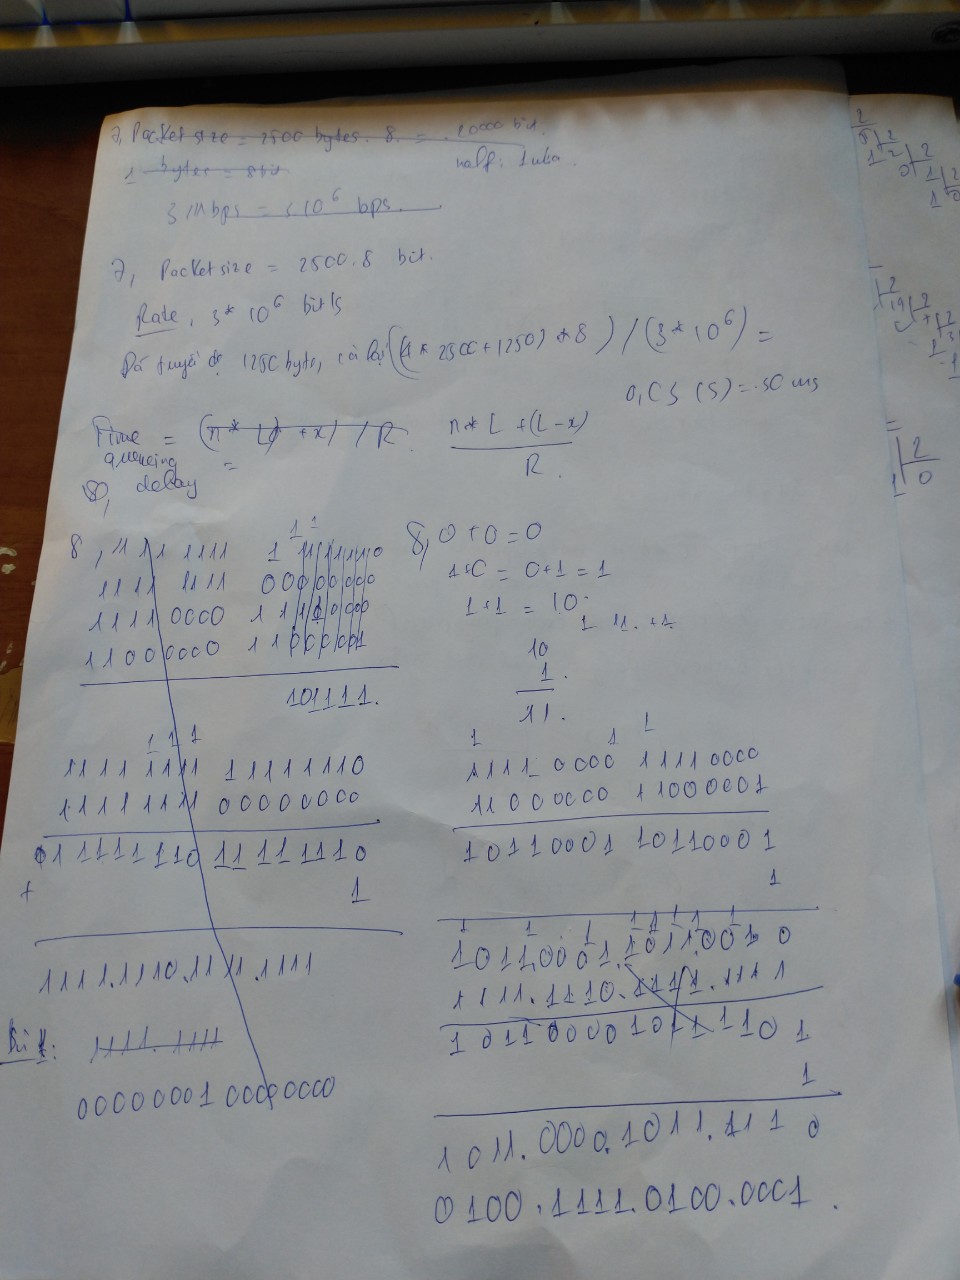 7, Packet size = 2500 bytes. 8. = 20000 bit.
1 bytes = 8 bit
half: 1
3 Mbps = 3.10^6 bps.
7, Packet size = 2500.8 bit.
Rate, 3* 10^6 bit/s
1250 byte, ( * 2500 + 1250) * 8 ) / (3 * 10^6) =
0,05 (s) = 50 ms
Time = (n* L) + x) / R
n* L + (L - x)
R.
queueing =
delay
8, 1111 1111 1
1111 1111 000 00000
1111 0000 1111 0000
1100 0000 1100 0001
101111.
1 1 1
1111 1111 11111110
1111 1111 00000000
01111110 11111110
+ 1
1111.1110.1111.1111
Bit: 1111.1111
00000001 00000000
8, 0 + 0 = 0
1+0 = 0+1 = 1
1+1 = 10
1 11. +1.
10
1.
11.
1 1 1
1111 0000 11110000
11000000 11000001
10110001 10110001
1
1 1 1 1 1 1 1 1
1011.0001.1011.0010
1111.1110.1111.1111
1011 0000 1011 1101
1
1011.0000.1011.1110
0100.1111.0100.0001.
2
2
1
0
2
0
19
2
2
1
2
1 0